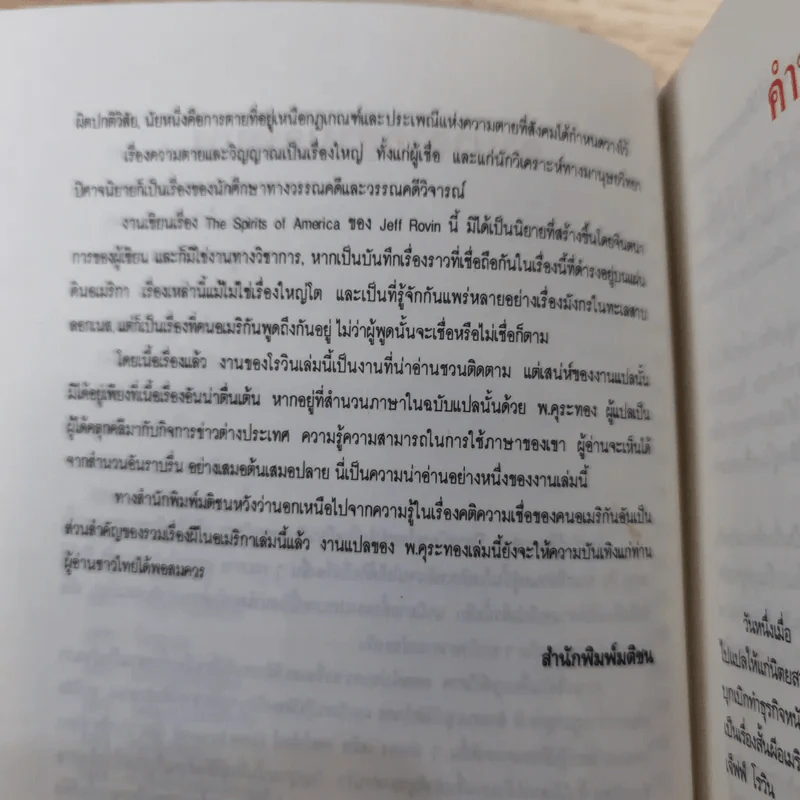 ผิดปกติวิสัย, นัยหนึ่งคือการตายที่อยู่เหนือกฎเกณฑ์และประเพณีแห่งความตายที่สังคมได้กำหนดวางไว้
เรื่องความตายและวิญญาณเป็นเรื่องใหญ่ ทั้งแก่ผู้เชื่อ และแก่นักวิเคราะห์ทางมานุษยวิทยา
ปีศาจนิยายก็เป็นเรื่องของนักศึกษาทางวรรณคดีและวรรณคดีวิจารณ์
งานเขียนเรื่อง The Spirits of America ของ Jeff Rovin นี้ มิได้เป็นนิยายที่สร้างขึ้นโดยจินตนา
การของผู้เขียน และก็มิใช่งานทางวิชาการ, หากเป็นบันทึกเรื่องราวที่เชื่อถือกันในเรื่องนี้ที่ดำรงอยู่บนแผ่น
ดินอเมริกา เรื่องเหล่านี้แม้ไม่ใช่เรื่องใหญ่โต และเป็นที่รู้จักกันแพร่หลายอย่างเรื่องมังกรในทะเลสาบ
ลอกเนส, แต่ก็เป็นเรื่องที่คนอเมริกันพูดถึงกันอยู่ ไม่ว่าผู้พูดนั้นจะเชื่อหรือไม่เชื่อก็ตาม
โดยเนื้อเรื่องแล้ว งานของโรวินเล่มนี้เป็นงานที่น่าอ่านชวนติดตาม แต่เสน่ห์ของงานแปลนั้น
มิได้อยู่เพียงที่เนื้อเรื่องอันน่าตื่นเต้น หากอยู่ที่สำนวนภาษาในฉบับแปลนั้นด้วย พ.คุระทอง ผู้แปลเป็น
ผู้ได้คลุกคลีมากับกิจการข่าวต่างประเทศ ความรู้ความสามารถในการใช้ภาษาของเขา ผู้อ่านจะเห็นได้
จากสำนวนอันราบรื่น อย่างเสมอต้นเสมอปลาย นี่เป็นความน่าอ่านอย่างหนึ่งของงานเล่มนี้
ทางสำนักพิมพ์มติชนหวังว่านอกเหนือไปจากความรู้ในเรื่องคติความเชื่อของคนอเมริกันอันเป็น
ส่วนสำคัญของรวมเรื่องผีในอเมริกาเล่มนี้แล้ว งานแปลของ พ.คุระทองเล่มนี้ยังจะให้ความบันเทิงแก่ท่าน
ผู้อ่านชาวไทยได้พอสมควร
สำนักพิมพ์มติชน
วันหนึ่งเมื่อ
ไปแปลให้แก่นิตยสา
บุกเบิกทำธุรกิจหนั
เป็นเรื่องสั้นผีอเมริ
เจ็ฟฟ์ โรวิน